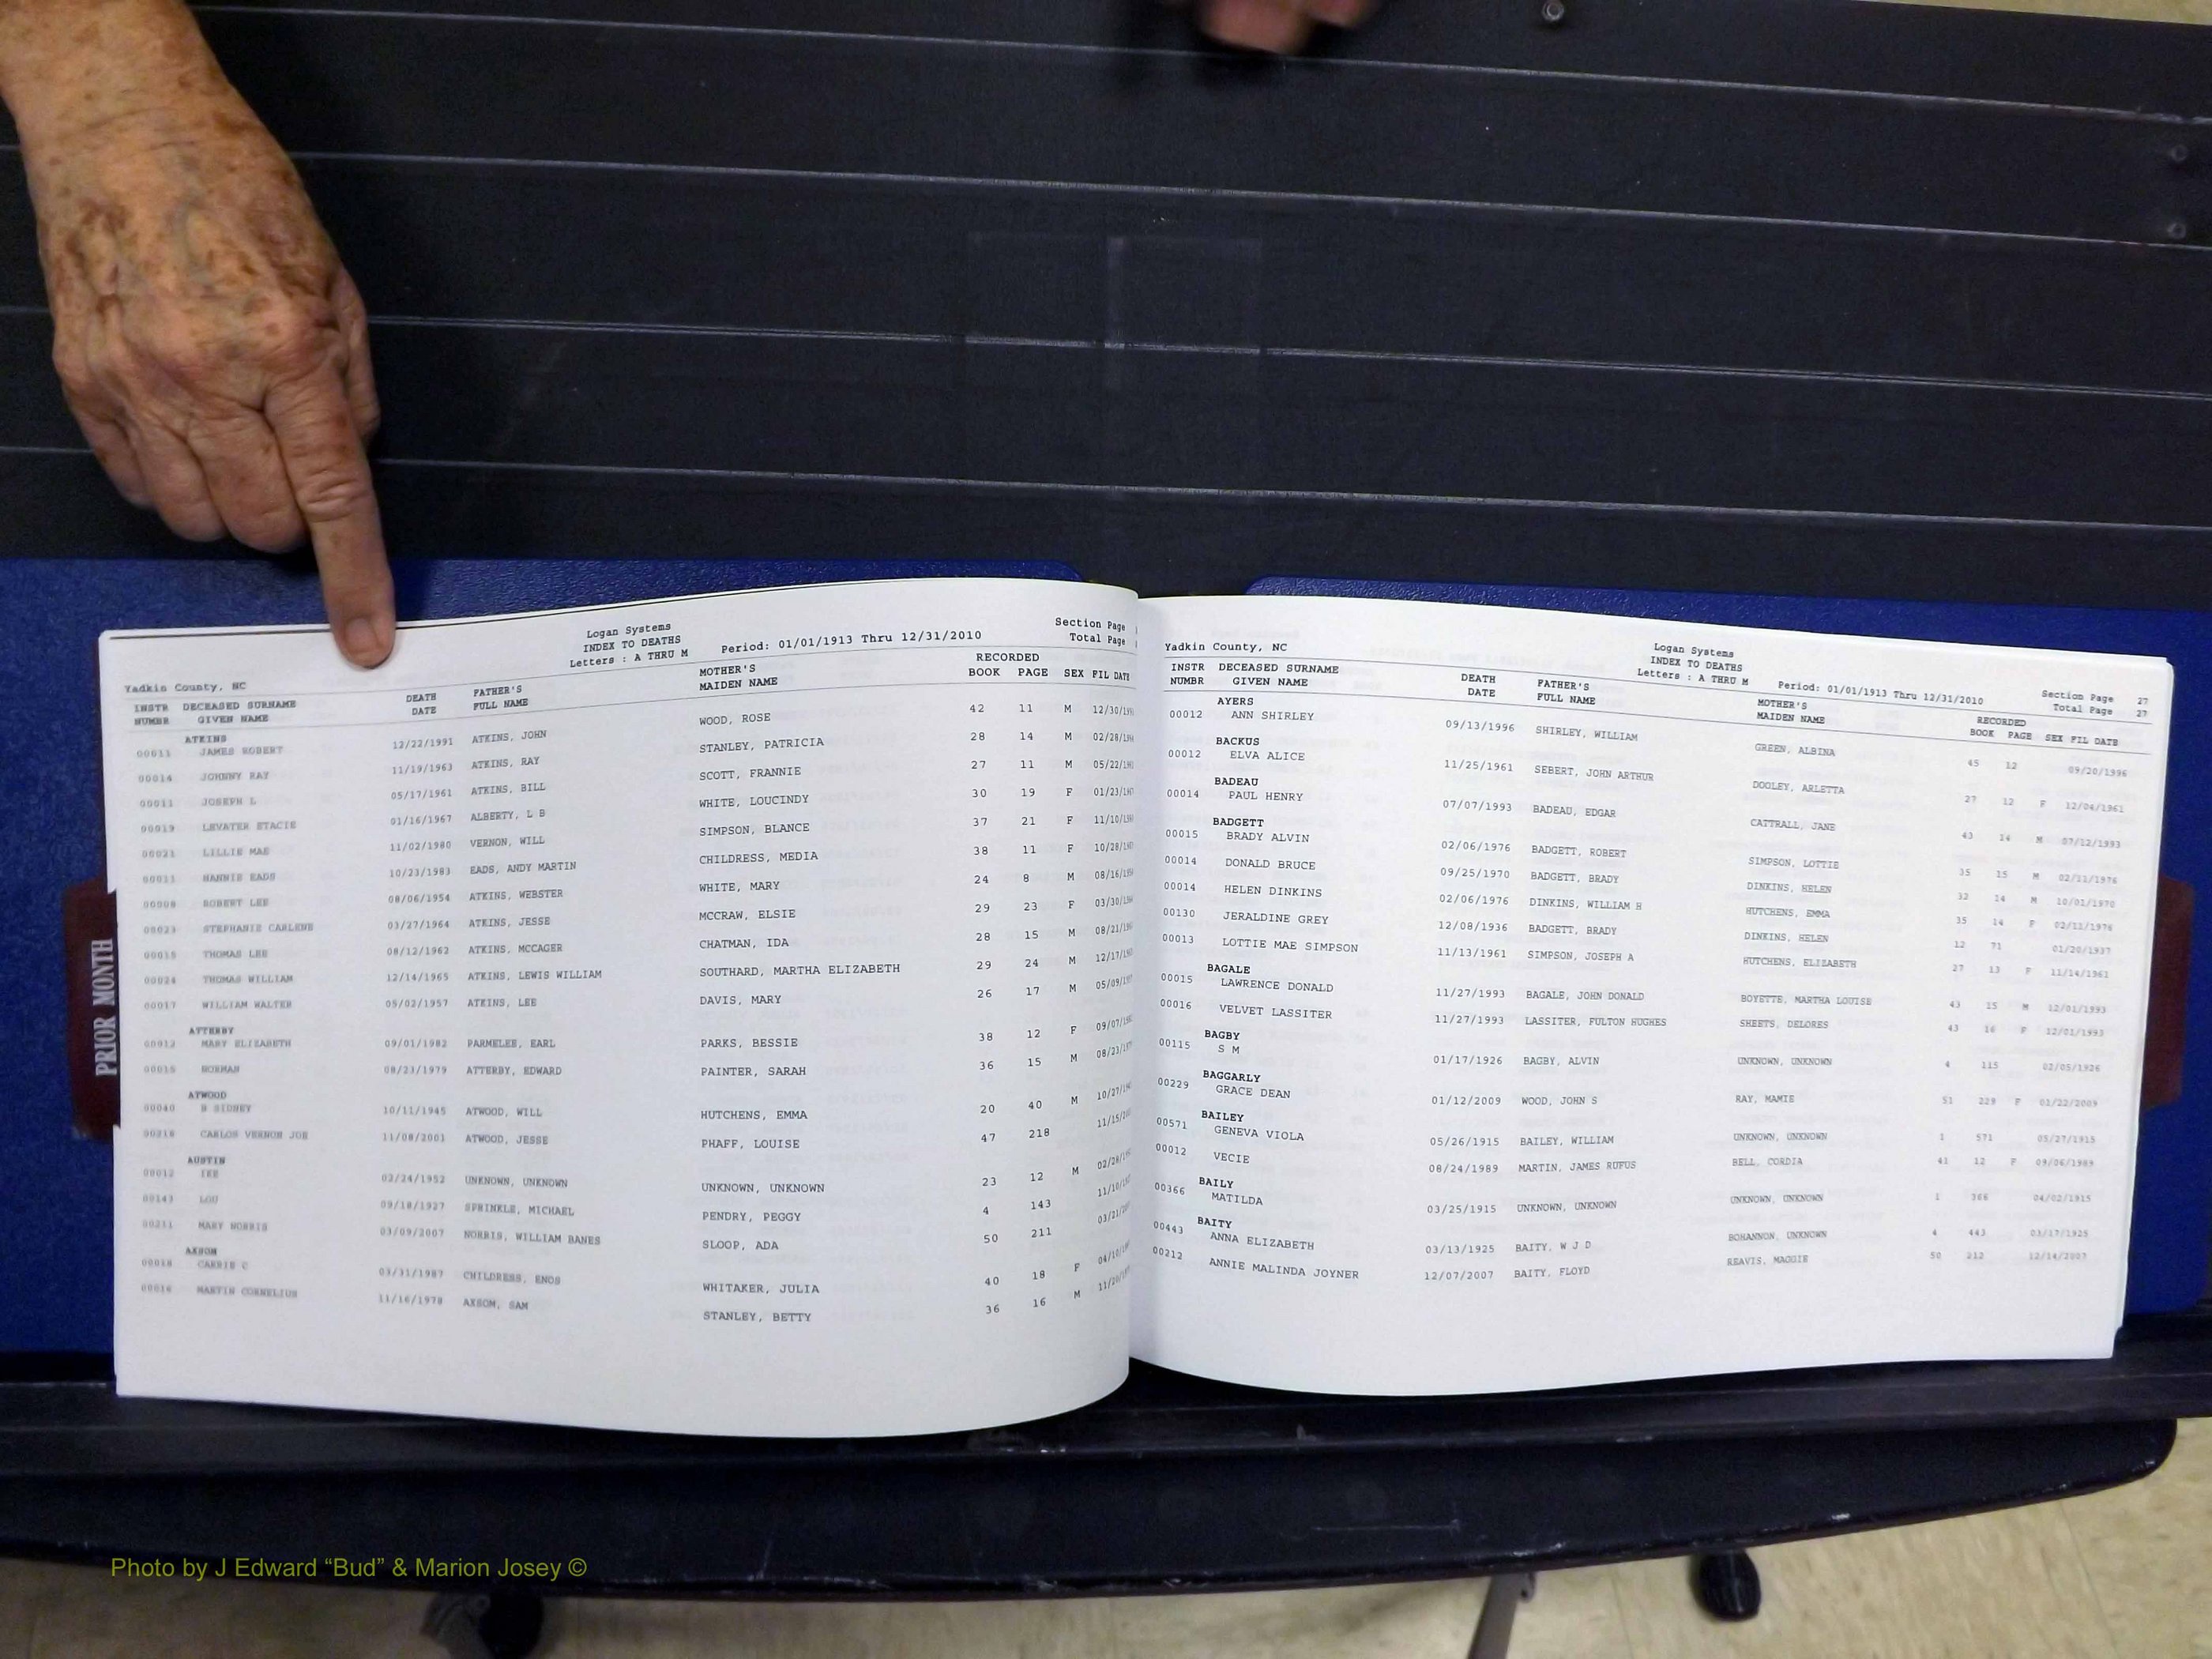 Logan Systems
INDEX TO DEATHS
Letters : A THRU M
Period: 01/01/1913 Thru 12/31/2010
Section Page
Total Page
Yadkin County, NC
INSTR NUMBR DECEASED SURNAME GIVEN NAME DEATH DATE FATHER'S FULL NAME MOTHER'S MAIDEN NAME RECORDED BOOK PAGE SEX FIL DATE
ATKINS
00011 JAMES ROBERT 12/22/1991 ATKINS, JOHN WOOD, ROSE 42 11 M 12/30/
00014 JOHNNY RAY 11/19/1963 ATKINS, RAY STANLEY, PATRICIA 28 14 M 02/28/
00011 JOSEPH L 05/17/1961 ATKINS, BILL SCOTT, FRANNIE 27 11 M 05/22/
00019 LEVATER ETACIE 01/16/1967 ALBERTY, L B WHITE, LOUCINDY 30 19 F 01/23/
00021 LILLIE MAE 11/02/1980 VERNON, WILL SIMPSON, BLANCE 37 21 F 11/10/
00011 NANNIE EADS 10/23/1983 EADS, ANDY MARTIN CHILDRESS, MEDIA 38 11 F 10/28/
00008 ROBERT LEE 08/06/1954 ATKINS, WEBSTER WHITE, MARY 24 8 M 08/16/
00023 STEPHANIE CARLENE 03/27/1964 ATKINS, JESSE MCCRAW, ELSIE 29 23 F 03/30/
00015 THOMAS LEE 08/12/1962 ATKINS, MCCAGER CHATMAN, IDA 28 15 M 08/21/
00024 THOMAS WILLIAM 12/14/1965 ATKINS, LEWIS WILLIAM SOUTHARD, MARTHA ELIZABETH 29 24 M 12/17/
00017 WILLIAM WALTER 05/02/1957 ATKINS, LEE DAVIS, MARY 26 17 M 05/09/
ATTERBY
00012 MARY ELIZABETH 09/01/1982 PARMELEE, EARL PARKS, BESSIE 38 12 F 09/07/
00015 NORMAN 08/23/1979 ATTERBY, EDWARD PAINTER, SARAH 36 15 M 08/23/
ATWOOD
00040 B SIDNEY 10/11/1945 ATWOOD, WILL HUTCHENS, EMMA 20 40 M 10/27/
00218 CARLOS VERNON JOE 11/08/2001 ATWOOD, JESSE PHAFF, LOUISE 47 218 11/15/
AUSTIN
00012 02/24/1952 UNKNOWN, UNKNOWN UNKNOWN, UNKNOWN 23 12 M 02/28/
00143 LOU 09/18/1927 SPRINKLE, MICHAEL PENDRY, PEGGY 4 143 11/10/
00211 MARY NORRIS 03/09/2007 NORRIS, WILLIAM BANES SLOOP, ADA 50 211 03/21/
AXSOM
00018 CARRIE C 03/31/1987 CHILDRESS, ENOS WHITAKER, JULIA 40 18 F 04/10/
00016 MARTIN CORNELIUS 11/16/1978 AXSOM, SAM STANLEY, BETTY 36 16 M 11/20/
PRIOR MONTH
Yadkin County, NC
Logan Systems
INDEX TO DEATHS
Letters : A THRU M
Period: 01/01/1913 Thru 12/31/2010
Section Page 27
Total Page 27
INSTR NUMBR DECEASED SURNAME GIVEN NAME DEATH DATE FATHER'S FULL NAME MOTHER'S MAIDEN NAME RECORDED BOOK PAGE SEX FIL DATE
AYERS
00012 ANN SHIRLEY 09/13/1996 SHIRLEY, WILLIAM GREEN, ALBINA 45 12 09/20/1996
BACKUS
00012 ELVA ALICE 11/25/1961 SEBERT, JOHN ARTHUR DOOLEY, ARLETTA 27 12 F 12/04/1961
BADEAU
00014 PAUL HENRY 07/07/1993 BADEAU, EDGAR CATTRALL, JANE 43 14 M 07/12/1993
BADGETT
00015 BRADY ALVIN 02/06/1976 BADGETT, ROBERT SIMPSON, LOTTIE 35 15 M 02/11/1976
00014 DONALD BRUCE 09/25/1970 BADGETT, BRADY DINKINS, HELEN 32 14 M 10/01/1970
00014 HELEN DINKINS 02/06/1976 DINKINS, WILLIAM H HUTCHENS, EMMA 35 14 F 02/11/1976
00130 JERALDINE GREY 12/08/1936 BADGETT, BRADY DINKINS, HELEN 12 71 01/20/1937
00013 LOTTIE MAE SIMPSON 11/13/1961 SIMPSON, JOSEPH A HUTCHENS, ELIZABETH 27 13 F 11/14/1961
BAGALE
00015 LAWRENCE DONALD 11/27/1993 BAGALE, JOHN DONALD BOYETTE, MARTHA LOUISE 43 15 M 12/01/1993
00016 VELVET LASSITER 11/27/1993 LASSITER, FULTON HUGHES SHEETS, DELORES 43 16 F 12/01/1993
BAGBY
00115 S M 01/17/1926 BAGBY, ALVIN UNKNOWN, UNKNOWN 4 115 02/05/1926
BAGGARLY
00229 GRACE DEAN 01/12/2009 WOOD, JOHN S RAY, MAMIE 51 229 F 01/22/2009
BAILEY
00571 GENEVA VIOLA 05/26/1915 BAILEY, WILLIAM UNKNOWN, UNKNOWN 1 571 05/27/1915
00012 VECIE 08/24/1989 MARTIN, JAMES RUFUS BELL, CORDIA 41 12 F 09/06/1989
BAILY
00366 MATILDA 03/25/1915 UNKNOWN, UNKNOWN UNKNOWN, UNKNOWN 1 366 04/02/1915
BAITY
00443 ANNA ELIZABETH 03/13/1925 BAITY, W J D BOHANNON, UNKNOWN 4 443 03/17/1925
00212 ANNIE MALINDA JOYNER 12/07/2007 BAITY, FLOYD REAVIS, MAGGIE 50 212 12/14/2007
Photo by J Edward “Bud” & Marion Josey ©